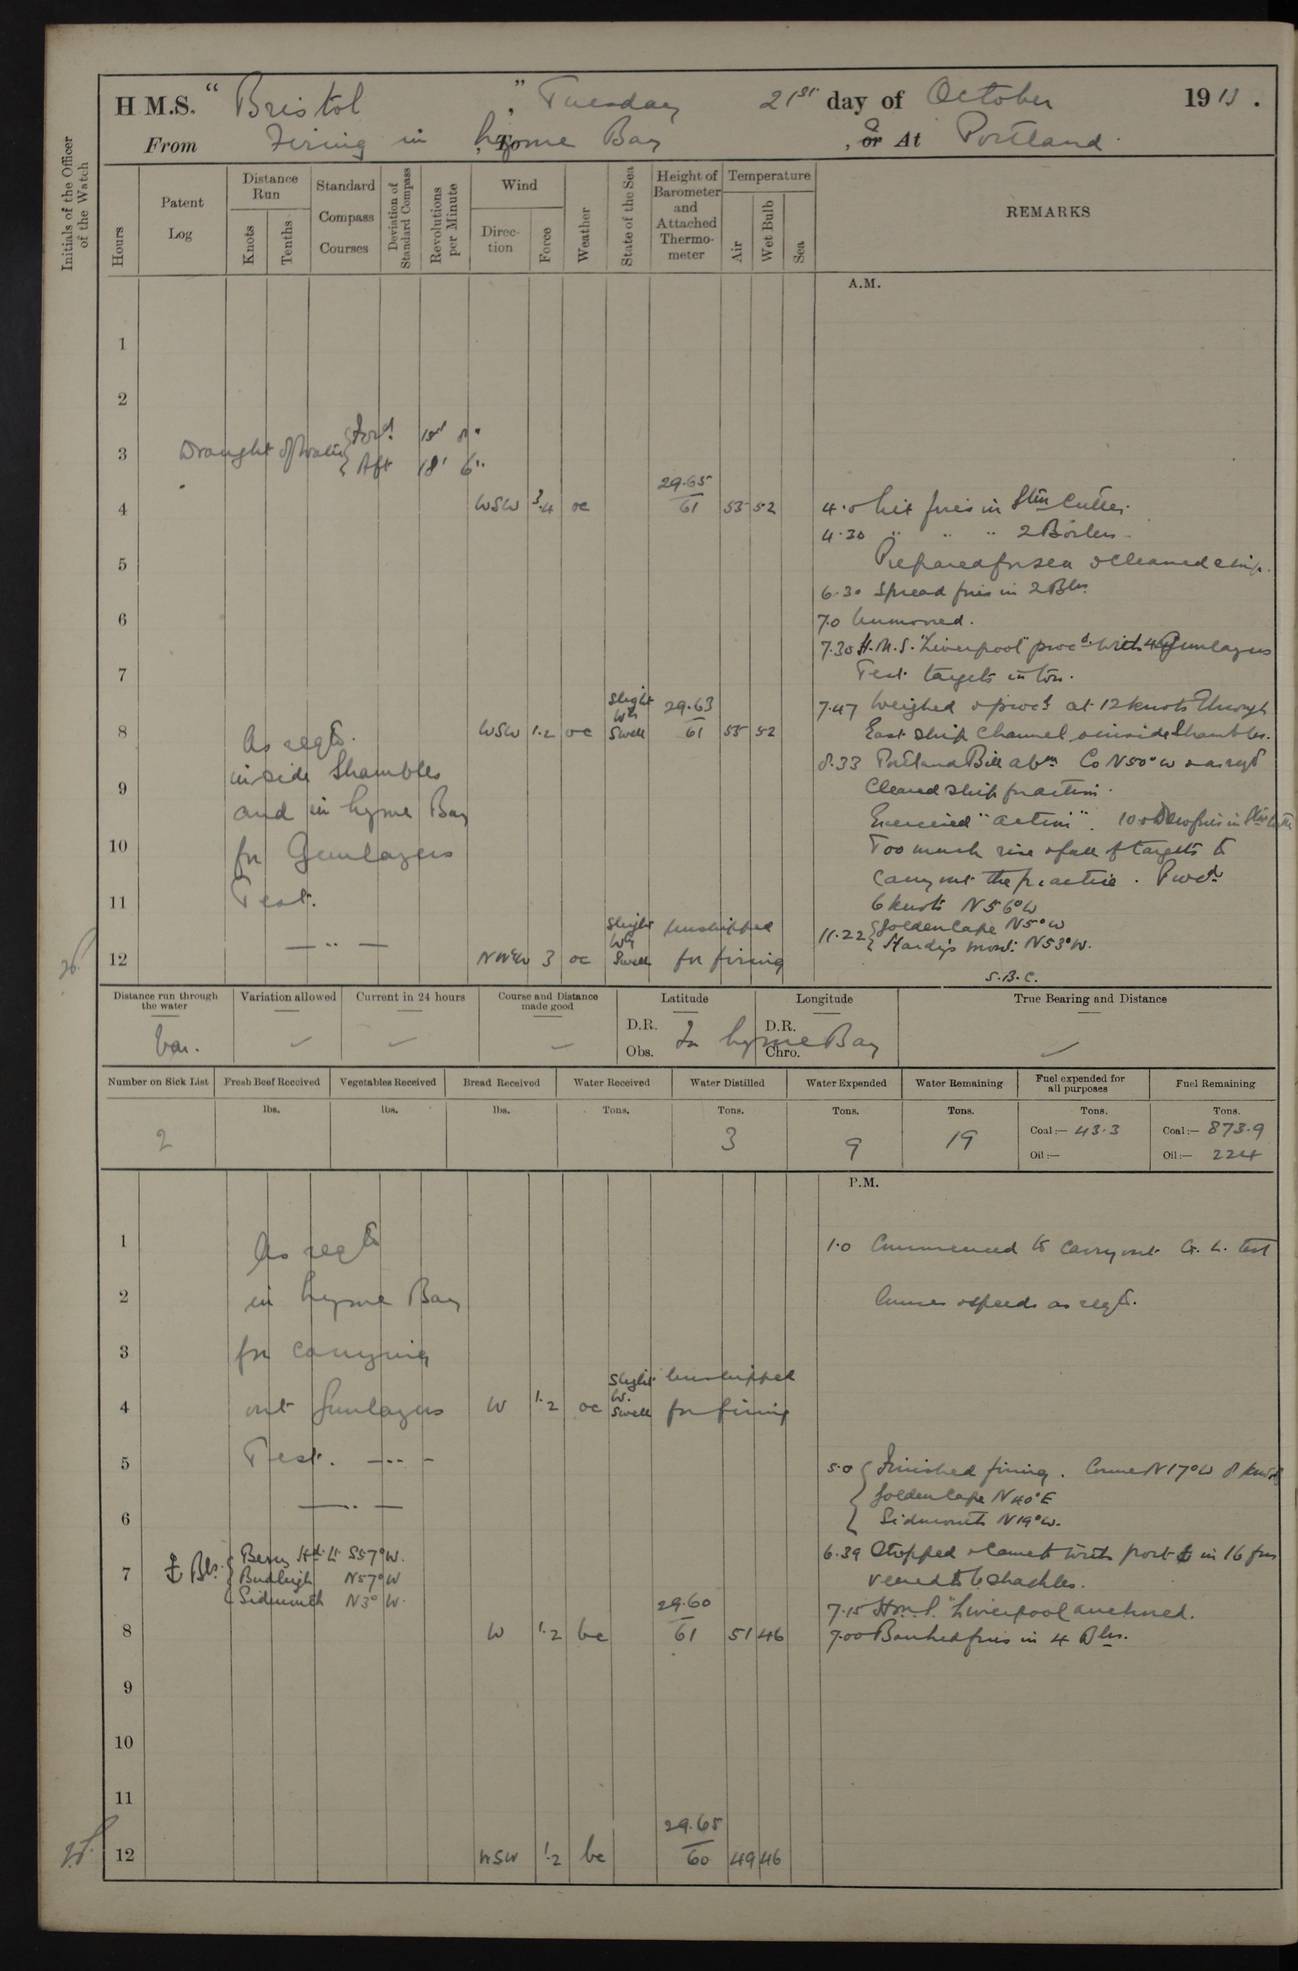 H.M.S. "Bristol", Tuesday 21st day of October 1913.
From Firing in Lyme Bay, To, or At Portland.
Initials of the Officer of the Watch
Hours
Patent Log
Distance Run
Knots
Tenths
Standard Compass Courses
Deviation of Standard Compass
Revolutions per Minute
Wind
Direction
Force
Weather
State of the Sea
Height of Barometer and Attached Thermometer
Temperature
Air
Wet Bulb
Sea
REMARKS
A.M.
1
2
3 Draught of Water { Ford.
Aft 18' 6"
4 WSW 3.4 oc 29.65 61 53 52
4.0 Lit fires in Stm Cutter.
4.30 " " " 2 Boilers.
5 Prepared for sea & cleaned ship.
6.30 Spread fires in 2 Blrs.
6
7.0 Unmoored.
7.30 H.M.S. "Liverpool" procd. with Gunlayers
Test targets in tow.
7
7.47 Weighed & procd at 12 knots through
8 As reqd. WSW 1.2 oc Slight Wly Swell 29.63 61 53 52
East Ship Channel & inside Shambles.
inside Shambles
8.33 Portland Bill abm Co N50°W & as reqd
9 and in Lyme Bay
Cleared ship for action.
Exercised "action". 10.0 Drew fires in Stm Cutter
10 for Gunlayers
Too much rise & fall of targets to
carry out the practice. Procd
11 Test.
6 knots N56°W
11.22 { Golden Cape N5°W
Hardy's Mont: N53°W.
12 NWW 3 oc Slight Wly Swell Unshipped for firing
S.B.C.
Distance run through the water
Variation allowed
Current in 24 hours
Course and Distance made good
Latitude
D.R.
Obs.
Longitude
D.R.
Chro.
True Bearing and Distance
Var.
In Lyme Bay
Number on Sick List
Fresh Beef Received
Vegetables Received
Bread Received
Water Received
Water Distilled
Water Expended
Water Remaining
Fuel expended for all purposes
Fuel Remaining
lbs. lbs. lbs. Tons. Tons. Tons. Tons. Tons. Tons.
2 3 9 19
Coal:— 43.3
Coal:— 873.9
Oil:—
Oil:— 224
P.M.
1 As reqd
1.0 Commenced to carry out G. L. test
2 in Lyme Bay
Courses & speeds as reqd.
3 for carrying
4 out Gunlayers W 1.2 oc Slight W. Swell Unshipped for firing
5 Test.
5.0 { Finished firing. Course N17°W 8 knots
Golden Cape N40°E
6
Sidmouth N19°W.
Berry Hd. Lt. S57°W.
6.39 Stopped & came to with port in 16 fms
7 Blr. Budleigh N57°W
veered to 6 shackles.
Sidmouth N3°W.
7.15 H.M.S. "Liverpool" anchored.
8 W 1.2 bc 29.60 61 51 46
7.00 Banked fires in 4 Blrs.
9
10
11
12 WSW 1.2 bc 29.65 60 49 46